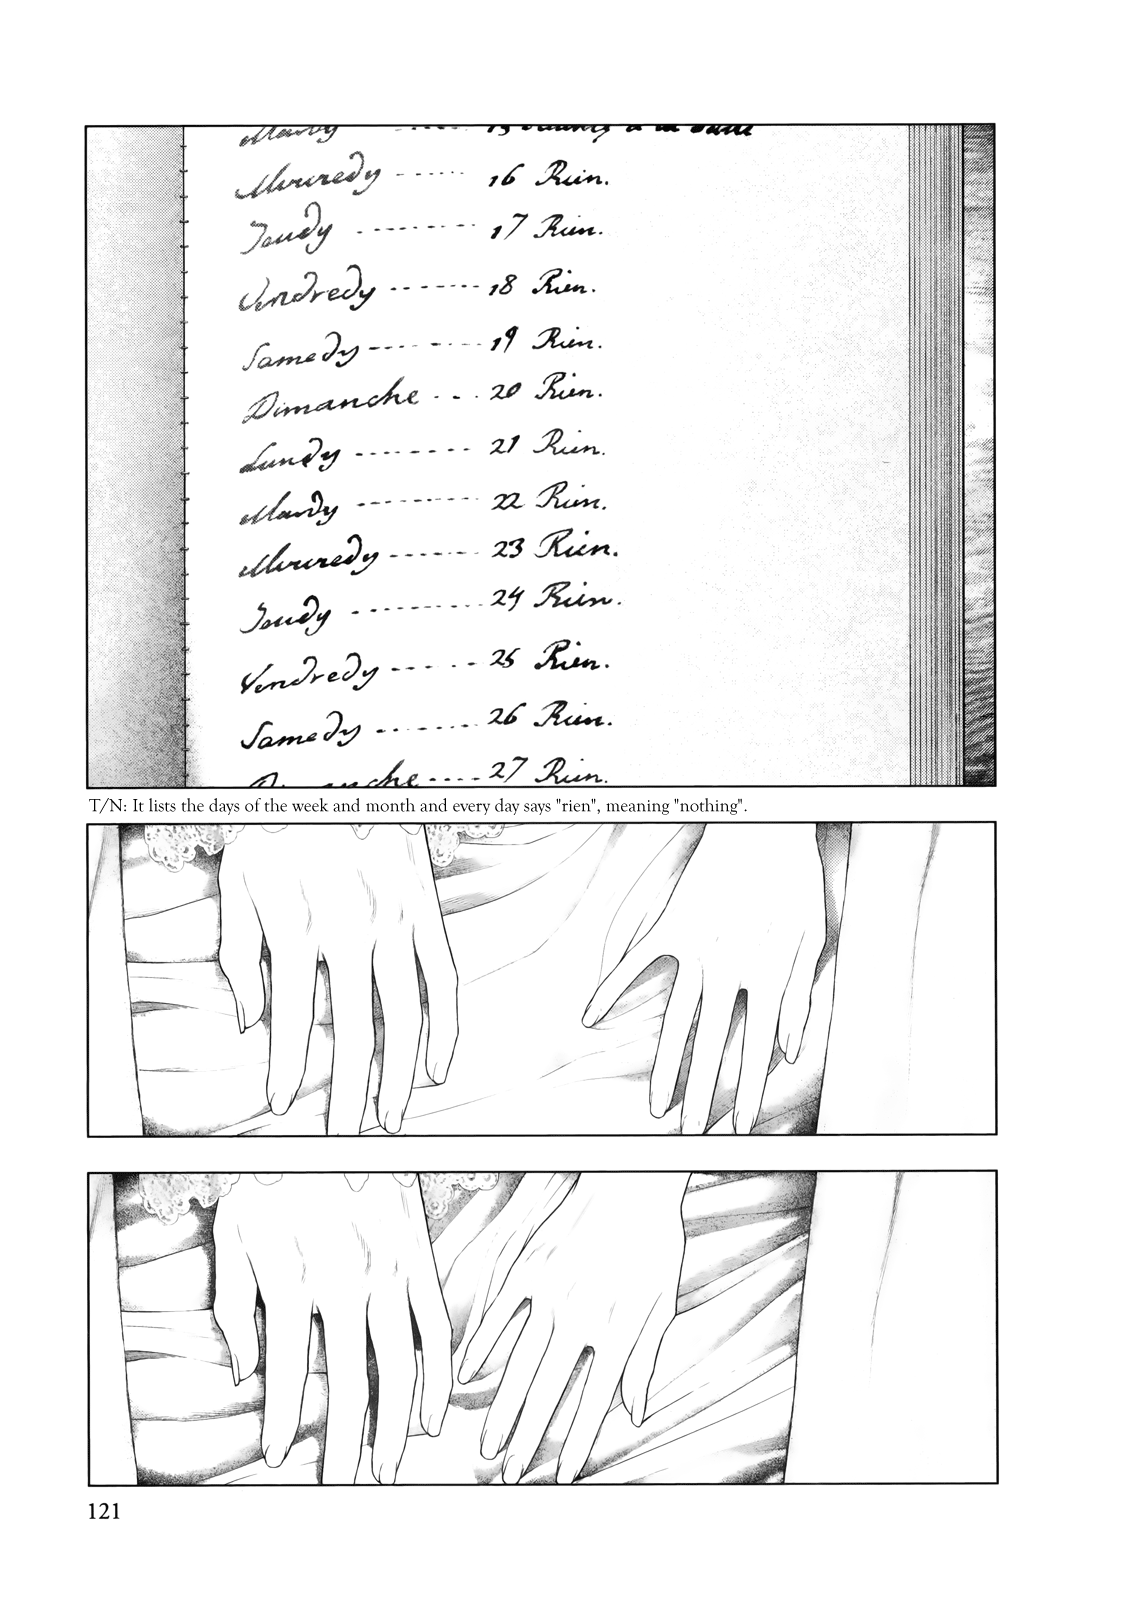 Mercredy ------ 16 Rien.
Jeudy --------- 17 Rien.
Vendredy ------- 18 Rien.
Samedy ---- - --- 19 Rien.
Dimanche - - - 20 Rien.
Lundy -------- 21 Rien.
Mardy --------- 22 Rien.
Mercredy ------- 23 Rien.
Jeudy ---------- 24 Rien.
Vendredy ------ 25 Rien.
Samedy -------- 26 Rien.
Dimanche ---- 27 Rien.
T/N: It lists the days of the week and month and every day says "rien", meaning "nothing".
121